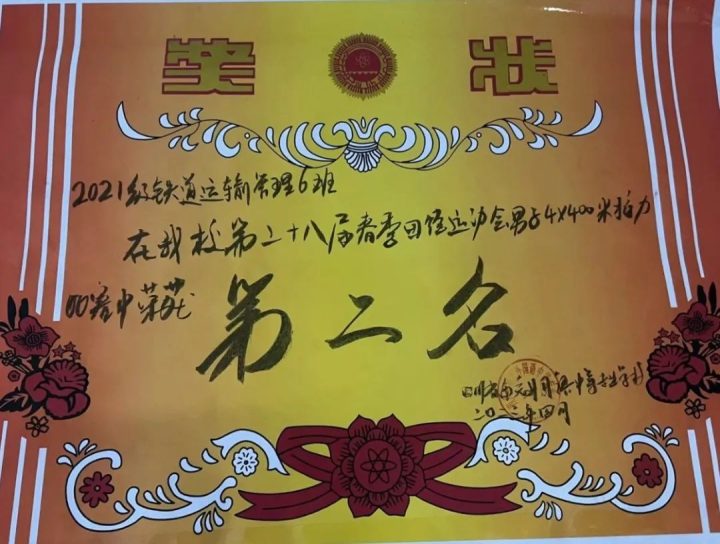 奖 状
2021级铁道运输管理6班
在我校第二十八届春季田径运动会男子4×400米接力
比赛中荣获
第二名
四川省
二〇二 年四月